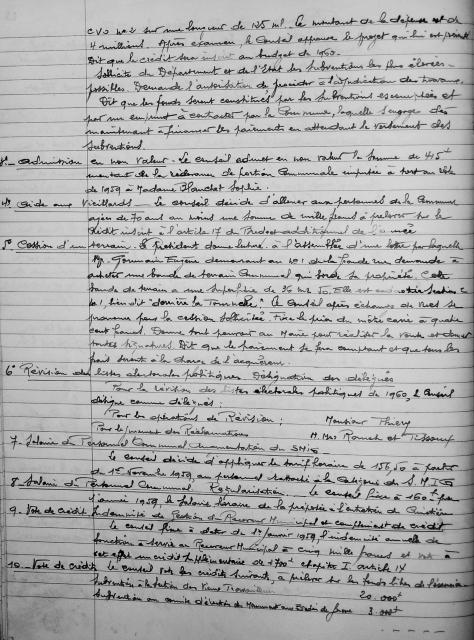 CVO no 2 sur une longueur de 125 ml. Le montant de la dépense est de
4 millions. Après examen, le Conseil approuve le projet qui lui est présenté
Dit que le crédit sera inscrit au budget de 1960.
Sollicite du Département et de l'Etat les subventions les plus élevées
possibles. Demande l'autorisation de procéder à l'adjudication des travaux.
Dit que les fonds seront constitués par les subventions escomptées et
par un emprunt à contracter par la Commune, laquelle s'engage dès
maintenant à financer les paiements en attendant le versement des
subventions.
3° - Admission en non valeur. Le conseil admet en non valeur la somme de 415f
montant de la redevance de portion Communale imposée à tort au rôle
de 1959 à Madame Blanchet Sophie.
4° Aide aux Vieillards. Le conseil décide d'allouer aux personnes de la Commune
âgées de 70 ans au moins une somme de mille francs à prélever sur le
crédit inscrit à l'article 17 du Budget additionnel de l'année
5° Cession d'un terrain. Le président donne lecture à l'assemblée d'une lettre par laquelle
Mr Germain Eugène demeurant au no 1 de la Grande rue demande à
acheter une bande de terrain Communal qui borde sa propriété. Cette
bande de terrain a une superficie de 36 m2 50. Elle est Section C
no 1, lieudit "derrière la Tournelle". Le Conseil après échange de vues se
prononce pour la cession sollicitée. Fixe le prix du mètre carré à quatre
cent francs. Donne tout pouvoir au Maire pour réaliser la vente et donner
toutes signatures. Dit que le paiement se fera comptant et que tous les
frais seront à la charge de l'acquéreur.
6° Révision des listes électorales politiques. Désignation des délégués
Pour la révision des listes électorales politiques de 1960, le Conseil
désigne comme délégués :
Pour les opérations de Révision : Monsieur Thiery
Pour le jugement des Réclamations M. Mrs Romet et
7. Salaire du Personnel Communal Augmentation du SMIG
Le conseil décide d'appliquer le tarif horaire de 156,50 à partir
du 1er Novembre 1959 au personnel rattaché à la Catégorie du S.M.I.G
8. Salaire du Personnel Communal Régularisation. Le conseil fixe à 160f pour
l'année 1959, le salaire horaire de la préposée à l'entretien du Cimetière
9. Vote de crédit Indemnité de Gestion du Receveur Municipal et complément de crédit
Le conseil fixe à dater du 1er Janvier 1959, l'indemnité annuelle de
fonction à servir au Receveur Municipal à cinq mille francs et vote à
cet effet un crédit supplémentaire de 1700f chapitre I article IX
10. Vote de crédits Le conseil vote les crédits suivants, à prélever sur les fonds libres de l'exercice
Subvention à la station des Vieux Travailleurs 20.000f
Subvention au comité d'érection du Monument aux 3.000f